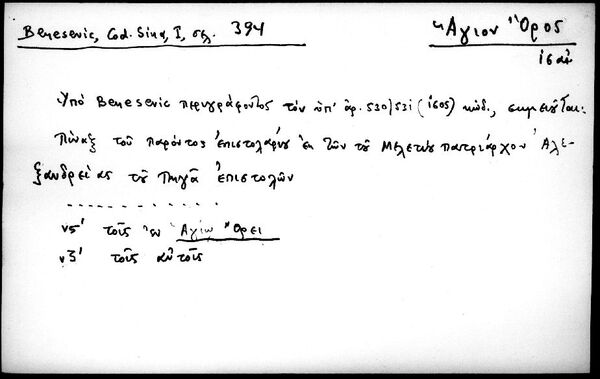 Benesevic, Cod. Sina, I, σελ. 394
Ἅγιον Ὄρος
ις αἰ
Ὑπὸ Benesevic περιγράφοντος τὸν ὑπ' ἀρ. 530/531 (1605) κώδ., σημειοῦται:
Πίναξ τοῦ παρόντος ἐπιστολαρίου ἐκ τῶν τοῦ Μελετίου πατριάρχου Ἀλε-
ξανδρείας τοῦ Πηγᾶ ἐπιστολῶν
. . . . . . . . . . .
νς' τοῖς ἐν Ἁγίῳ Ὄρει
νζ' τοῖς αὐτοῖς